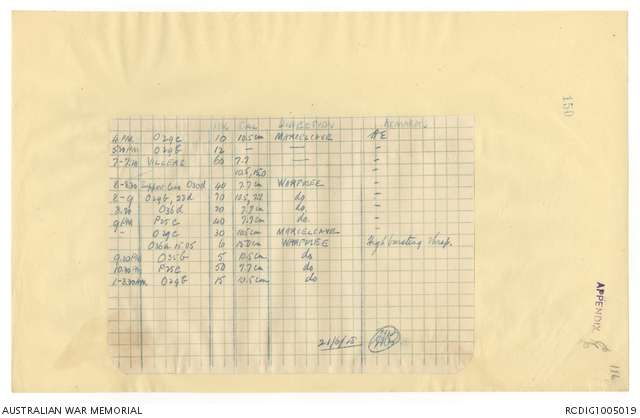 150
NO. CAL DIRECTION REMARKS
4 PM O29c 10 10.5cm MARCELCAVE HE
O29b 12 — — "
7-7.10 VILLERS 60 7.7 — "
10.5, 15.0 "
8-8.30 O30d 40 7.7cm WARFUEE "
8-9 O29b, 23d 70 10.5, 77 do "
8.30 O36d 20 7.7cm do "
9 PM P25c 40 7.7cm do "
- O29c 30 10.5cm MARCELCAVE "
O36a 15.05 6 15.0cm WARFUEE High bursting shrap.
9.30 PM O35b 5 10.5cm do
10.30 PM P25c 50 7.7cm do
O29b 15 10.5cm do
APPENDIX
116
AUSTRALIAN WAR MEMORIAL
RCDIG1005019